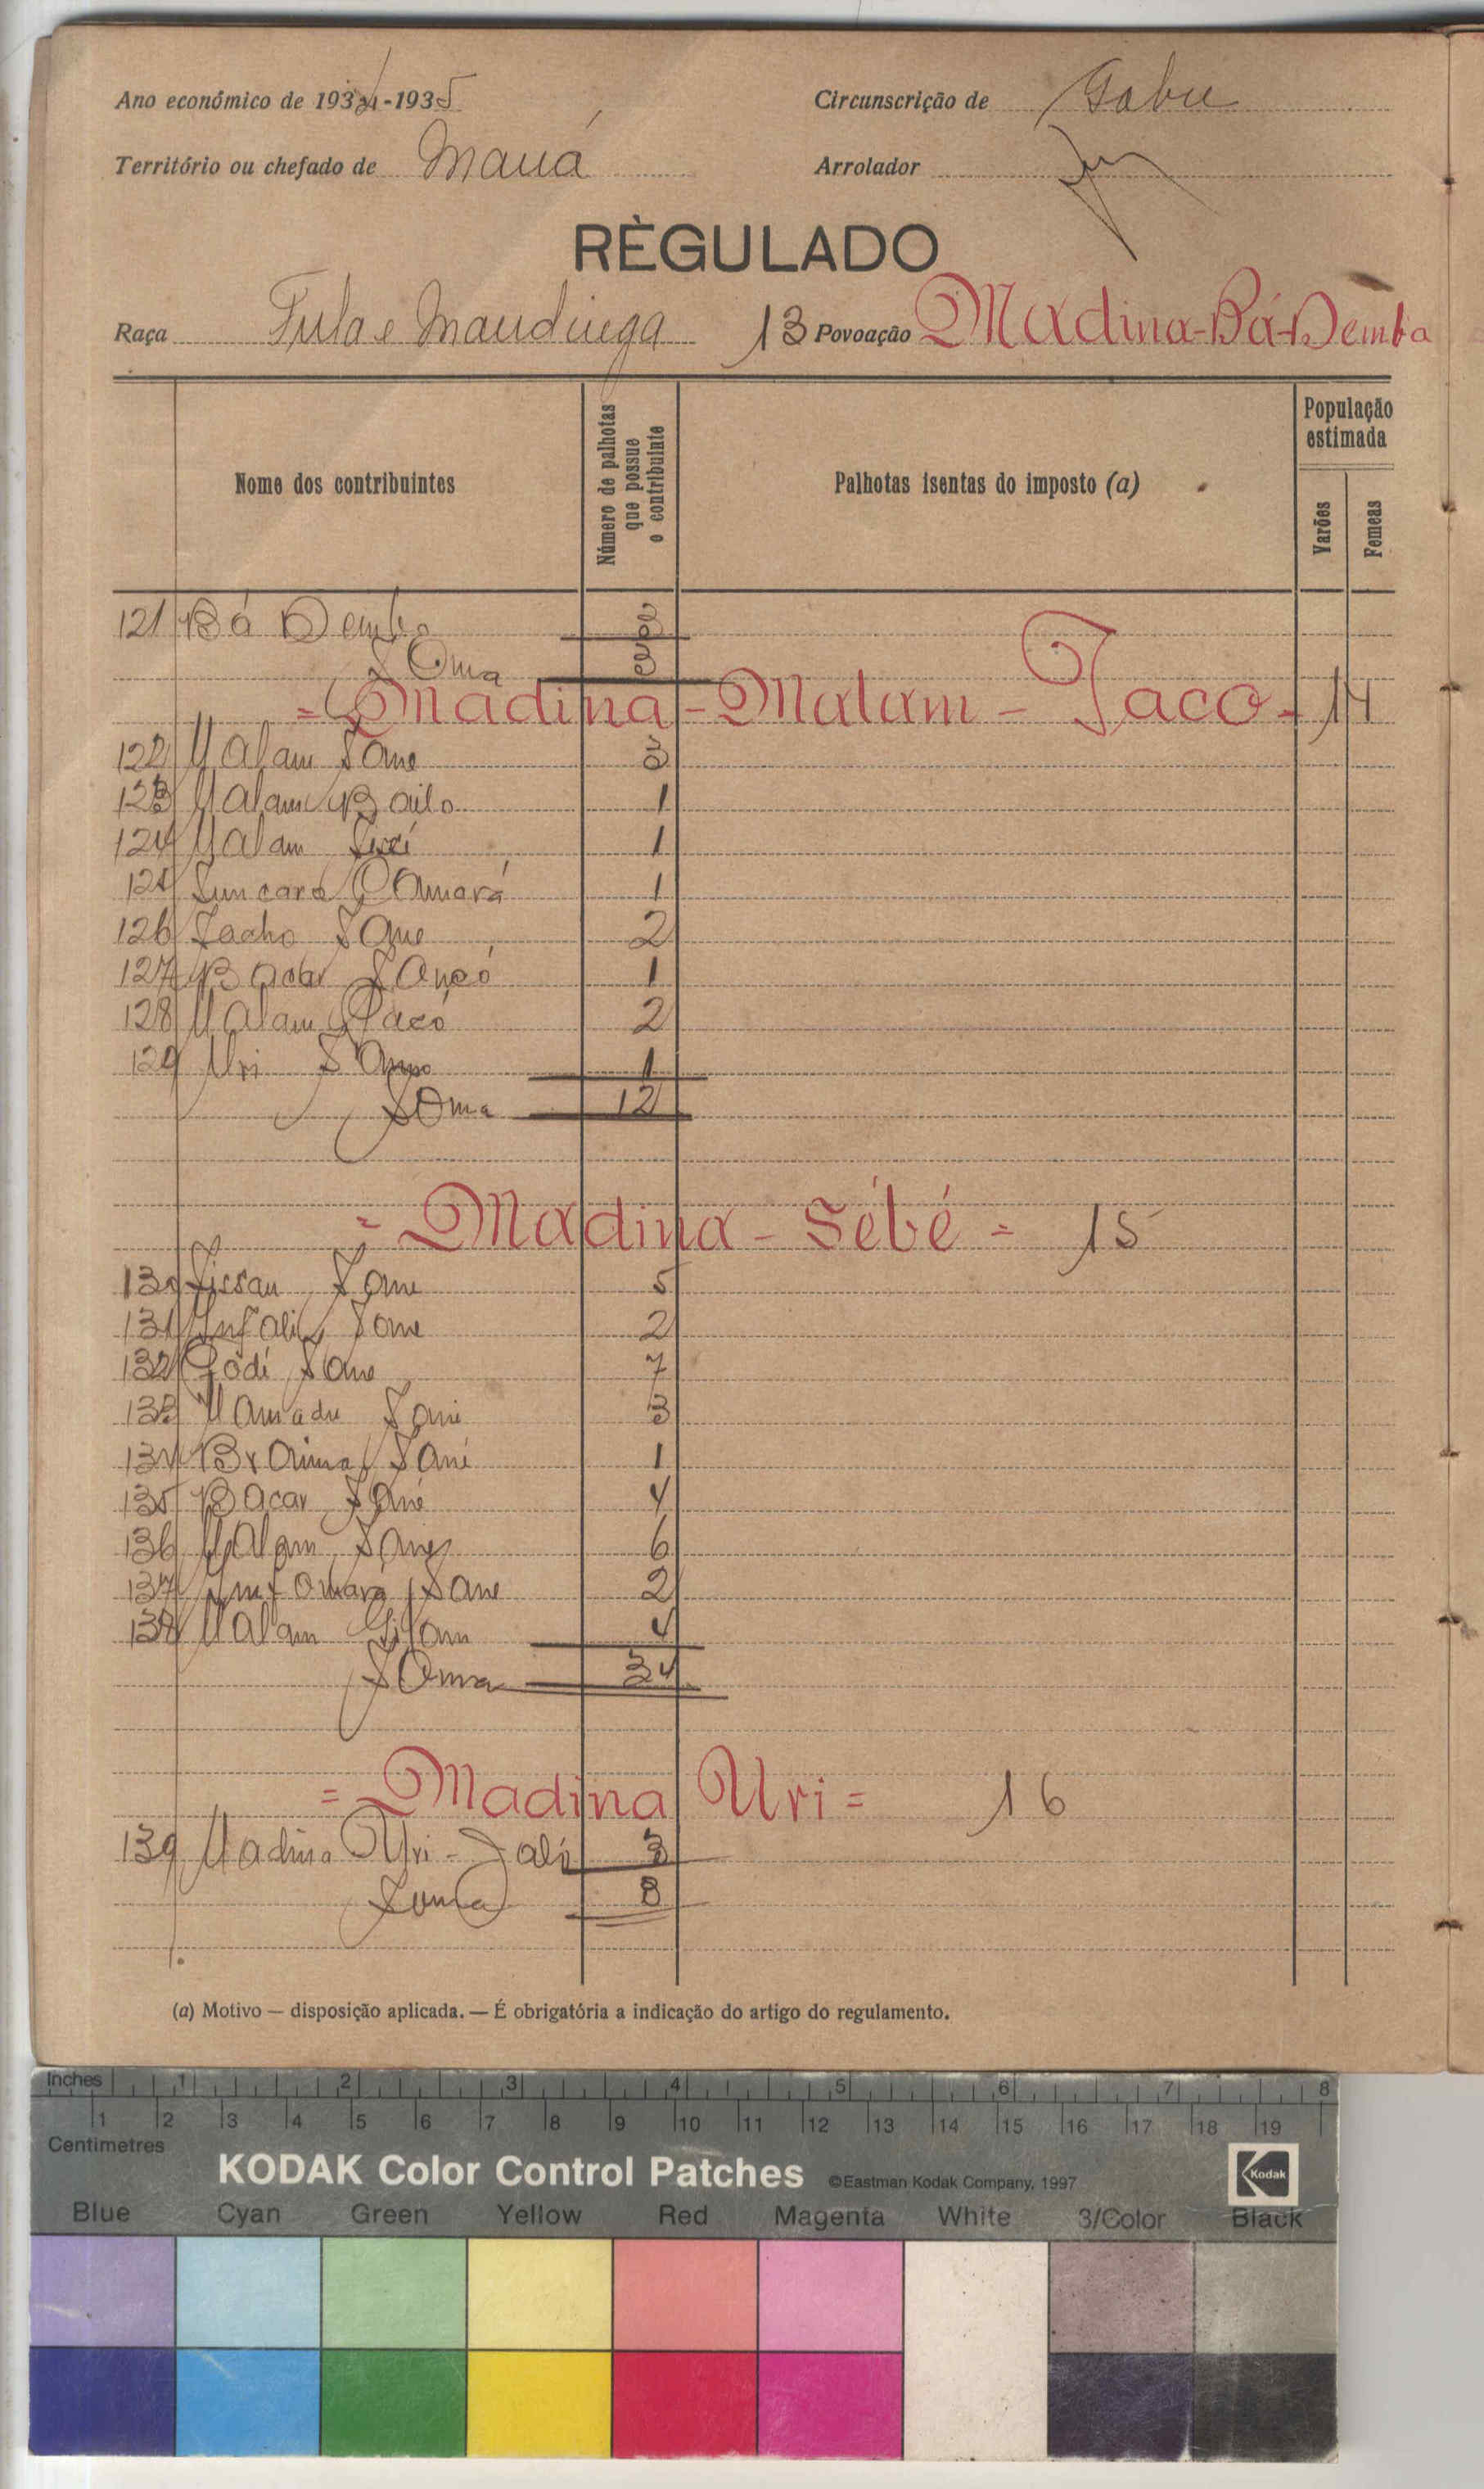 Ano económico de 1934-1935
Circunscrição de Gabu
Território ou chefado de Mauá
Arrolador
RÈGULADO
Raça Fula e Mandinga
13 Povoação Madina-Bá-Demba
Nome dos contribuintes
Número de palhotas que possue o contribuinte
Palhotas isentas do imposto (a)
População estimada
Varões
Femeas
121 Bá Demba
Soma
= Madina-Malam-Jaco- 14
122 Malam Sane
123 Malam Bailo 1
124 Malam 1
125 Suncaro Camará 1
126 Sacho Sane 2
127 Bacar Sancó 1
128 Malam 2
129 Uri 1
Soma 12
= Madina-Sébé = 15
130 Sissau Sane 5
131 Infali Sane 2
132 Godi Sane 7
133 Mamadu Sani 3
134 Braima Sané 1
135 Bacar Sané 4
136 Malam Sane 6
137 Sane 2
138 Malam 4
Soma 34
= Madina Uri = 16
139 Madina Uri-Jaló 3
Soma 3
(a) Motivo — disposição aplicada. — É obrigatória a indicação do artigo do regulamento.
Inches 1 2 3 4 5 6 7 8
1 2 3 4 5 6 7 8 9 10 11 12 13 14 15 16 17 18 19
Centimetres
KODAK Color Control Patches ©Eastman Kodak Company, 1997 Kodak
Blue Cyan Green Yellow Red Magenta White 3/Color Black